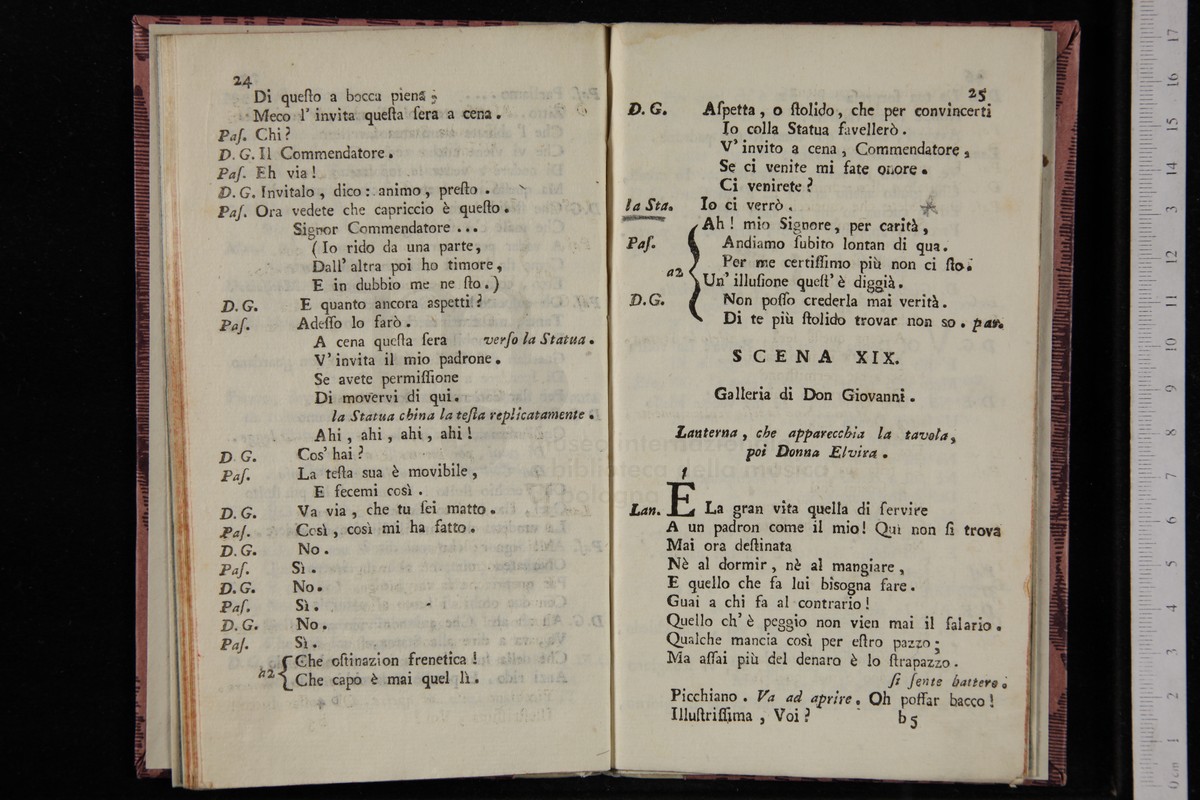 24
Di queſto a bocca piena ;
Meco l' invita queſta ſera a cena .
Paſ. Chi ?
D. G. Il Commendatore .
Paſ. Eh via !
D. G. Invitalo , dico : animo , preſto .
Paſ. Ora vedete che capriccio è queſto .
Signor Commendatore ...
( Io rido da una parte,
Dall' altra poi ho timore ,
E in dubbio me ne ſto . )
D. G. E quanto ancora aſpetti ?
Paſ. Adeſſo lo farò .
A cena queſta ſera verſo la Statua .
V' invita il mio padrone .
Se avete permiſſione
Di movervi di qui .
la Statua china la teſta replicatamente .
Ahi , ahi , ahi , ahi !
D G. Cos' hai ?
Paſ. La teſta sua è movibile ,
E fecemi così .
D. G. Va via , che tu ſei matto .
Paſ. Così , così mi ha fatto .
D. G. No .
Paſ. Sì .
D. G. No .
Paſ. Sì .
D. G. No .
Paſ. Sì .
a2 { Che oſtinazion frenetica !
Che capo è mai quel lì .
25
D. G. Aſpetta , o ſtolido , che per convincerti
Io colla Statua favellerò .
V' invito a cena , Commendatore ,
Se ci venite mi fate onore .
Ci venirete ?
la Sta. Io ci verrò .
Ah ! mio Signore , per carità ,
Paſ. Andiamo ſubito lontan di qua .
Per me certiſſimo più non ci ſto .
a2 { Un' illuſione queſt' è diggià .
D.G. Non poſſo crederla mai verità .
Di te più ſtolido trovar non so . par.
SCENA XIX.
Galleria di Don Giovanni .
Lanterna , che apparecchia la tavola ,
poi Donna Elvira .
Lan. E La gran vita quella di ſervire
A un padron come il mio ! Qui non ſi trova
Mai ora deſtinata
Nè al dormir , nè al mangiare ,
E quello che fa lui bisogna fare .
Guai a chi fa al contrario !
Quello ch' è peggio non vien mai il ſalario .
Qualche mancia così per eſtro pazzo ;
Ma aſſai più del denaro è lo ſtrapazzo .
ſi ſente battere .
Picchiano . Va ad aprire . Oh poſſar bacco !
Illuſtriſſima , Voi ?
b5